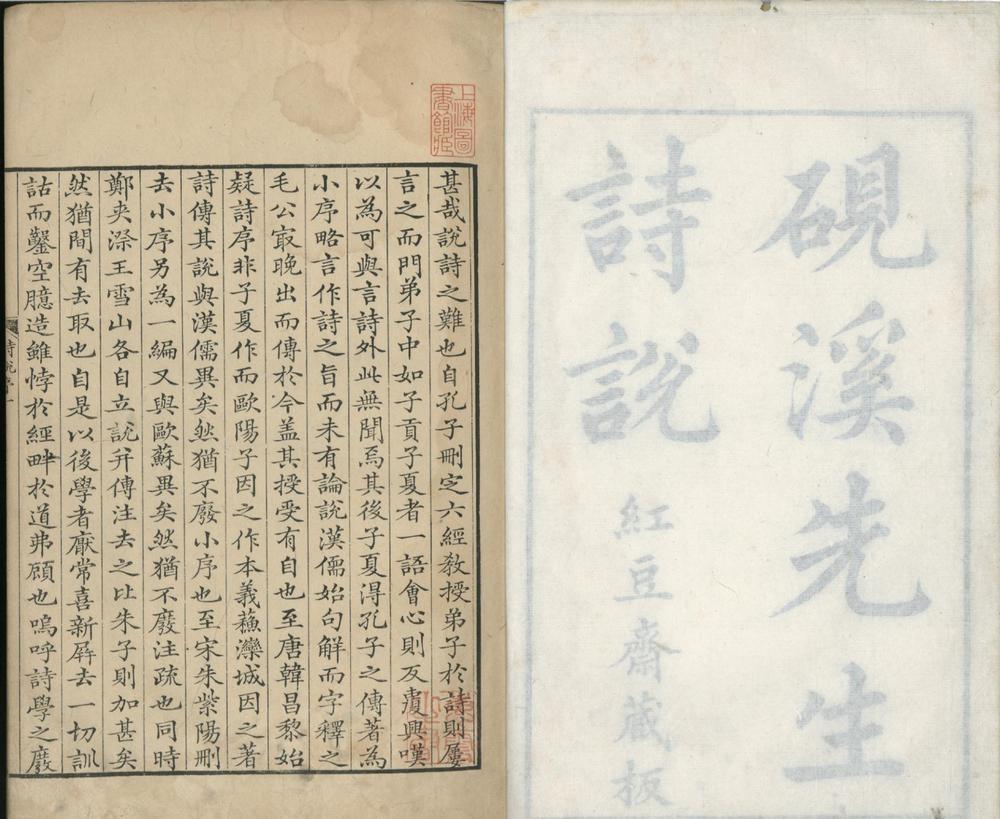 硯溪先生
詩說
紅豆齋藏板
上海圖
書館藏
甚哉說詩之難也自孔子刪定六經教授弟子於詩則屢
言之而門弟子中如子貢子夏者一語會心則反覆興嘆
以為可與言詩外此無聞焉其後子夏得孔子之傳著為
小序略言作詩之旨而未有論說漢儒始句解而字釋之
毛公㝡晚出而傳於今盖其授受有自也至唐韓昌黎始
疑詩序非子夏作而歐陽子因之作本義蘓灤城因之著
詩傳其說與漢儒異矣然猶不廢小序也至宋朱紫陽刪
去小序另為一編又與歐蘇異矣然猶不廢注疏也同時
鄭夾漈王雪山各自立說并傳注去之比朱子則加甚矣
然猶間有去取也自是以後學者厭常喜新屏去一切訓
詁而鑿空臆造雖悖於經畔於道弗顧也嗚呼詩學之廢
詩說序
一